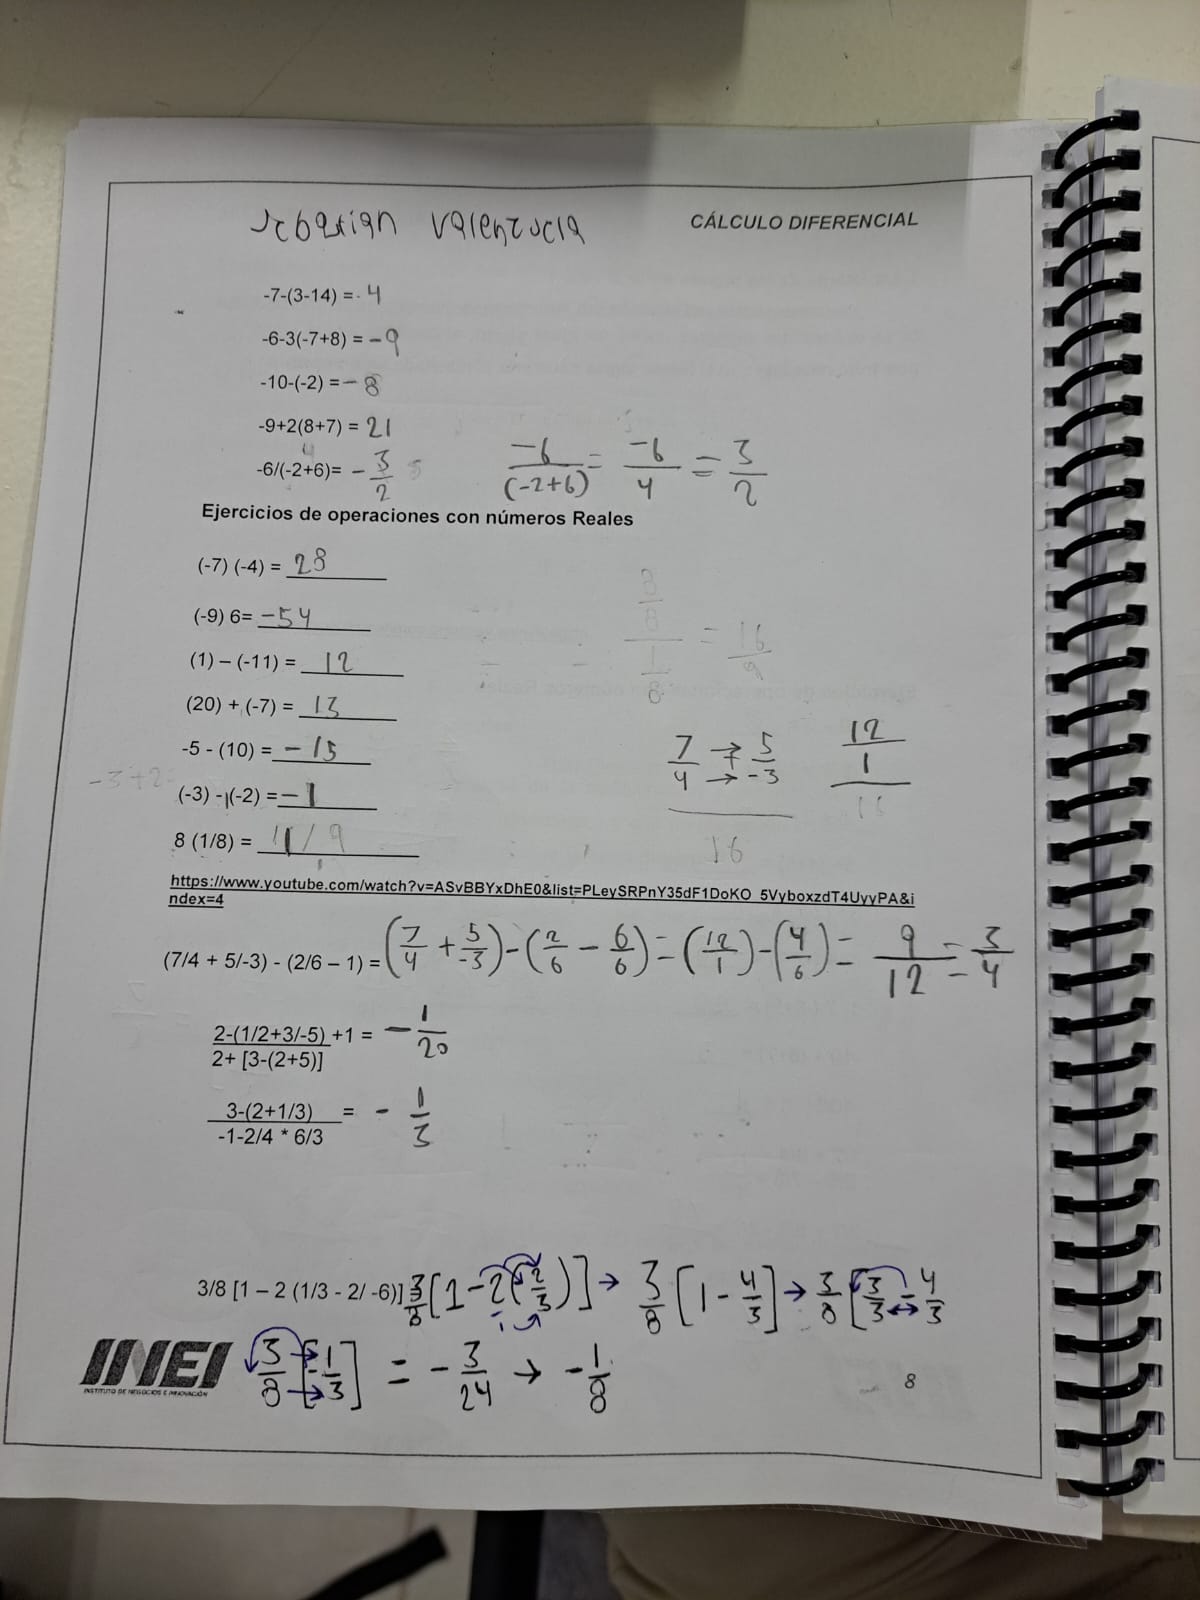 Sebastian Valenzuela
CÁLCULO DIFERENCIAL
-7-(3-14) = 4
-6-3(-7+8) = -9
-10-(-2) = -8
-9+2(8+7) = 21
-6/(-2+6)= - 3/2
-6/(-2+6) = -6/4 = 3/2
Ejercicios de operaciones con números Reales
(-7) (-4) = 28
(-9) 6= -54
(1) – (-11) = 12
(20) + (-7) = 13
-5 - (10) = -15
-3+2=
(-3) - (-2) = -1
8 (1/8) =
8/8 / 1/8 = 16/9
7/4 + 5/-3
16
12/1
16
https://www.youtube.com/watch?v=ASvBBYxDhE0&list=PLeySRPnY35dF1DoKO_5VyboxzdT4UyyPA&i
ndex=4
(7/4 + 5/-3) - (2/6 – 1) = (7/4 + 5/-3) - (2/6 - 6/6) = (12/1) - (4/6) = 9/12 = 3/4
2-(1/2+3/-5) +1 = - 1/20
2+ [3-(2+5)]
3-(2+1/3) = - 1/3
-1-2/4 * 6/3
3/8 [1 – 2 (1/3 - 2/ -6)] 3/8 [1-2(2/3)] → 3/8 [1 - 4/3] → 3/8 [3/3 - 4/3
3/8 [-1/3] = - 3/24 → - 1/8
INEI
INSTITUTO DE NEGOCIOS E INNOVACIÓN
8